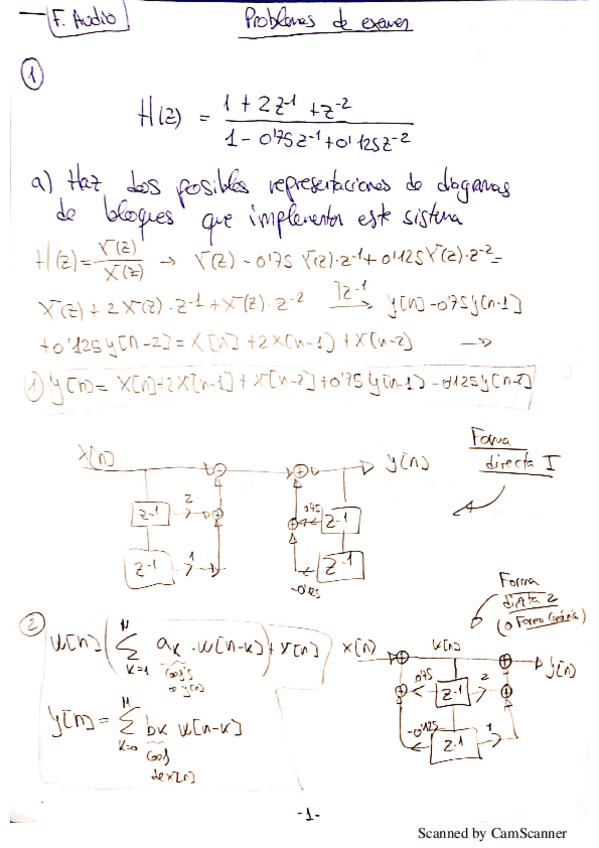 F. Audio
Problemas de examen
1
H(z) = 1 + 2z-1 + z-2
1 - 0'75z-1 + 0'125z-2
a) Haz dos posibles representaciones de diagramas
de bloques que implementen este sistema
H(z) = Y(z) / X(z) → Y(z) - 0'75 Y(z)·z-1 + 0'125 Y(z)·z-2 =
X(z) + 2X(z)·z-1 + X(z)·z-2 → y[n] - 0'75y[n-1]
+0'125y[n-2] = x[n] + 2x[n-1] + x[n-2] →
1) y[n] = x[n] + 2x[n-1] + x[n-2] + 0'75y[n-1] - 0'125y[n-2]
Forma
directa I
x[n]
y[n]
z-1
2
0'75
z-1
z-1
1
-0'125
z-1
Forma
directa 2
2
w[n] ( N Σ k=1 ak · w[n-k] ) + x[n]
y[n] = M Σ k=0 bk w[n-k]
de x[n]
x[n]
w[n]
y[n]
0'75
z-1
2
-0'125
z-1
1
-1-
Scanned by CamScanner